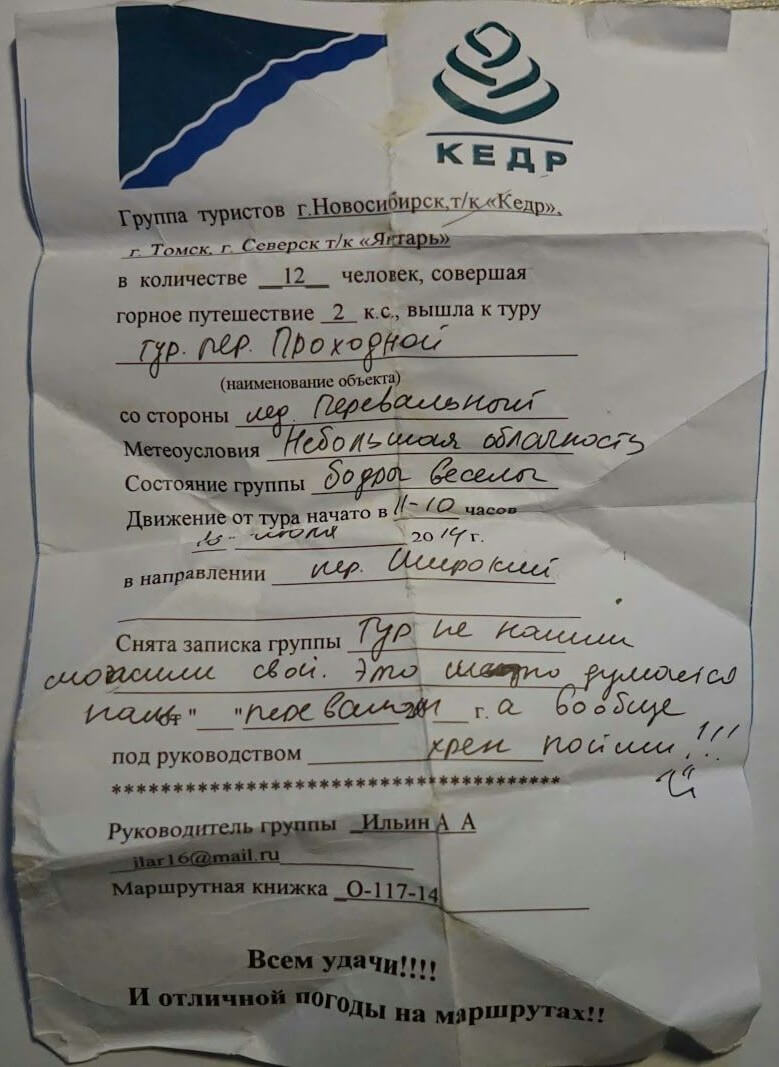 КЕДР
Группа туристов г.Новосибирск,т/к «Кедр»,
г. Томск, г. Северск т/к «Янтарь»
в количестве 12 человек, совершая
горное путешествие 2 к.с., вышла к туру
тур. пер. Проходной
(наименование объекта)
со стороны лед. Перевальный
Метеоусловия Небольшая облачность
Состояние группы бодры веселы
Движение от тура начато в 11-10 часов
июля 2014 г.
в направлении пер. Широкий
Снята записка группы Тур не нашли
свой. Это думается
нам от " " перевал 20 г. а вообще
под руководством хрен пойми!!!
***********************************
Руководитель группы Ильин А А
ilar16@mail.ru
Маршрутная книжка О-117-14
Всем удачи!!!!
И отличной погоды на маршрутах!!